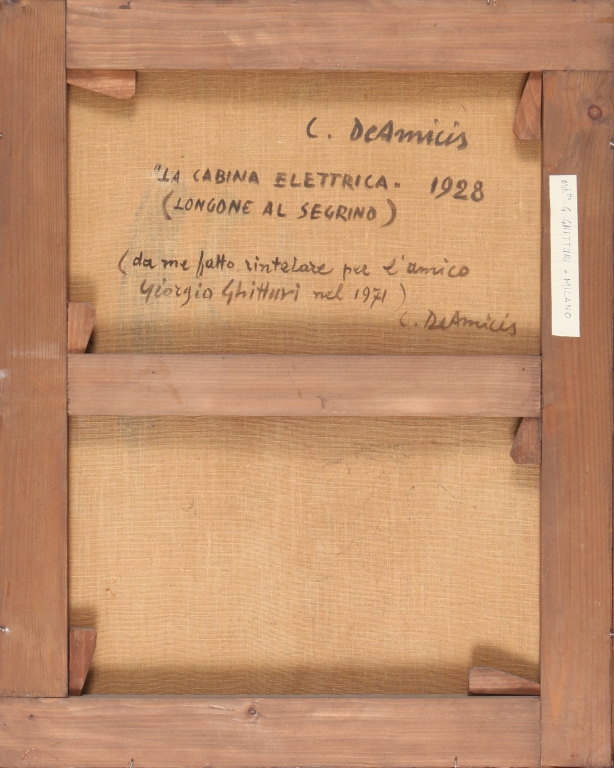 C. DeAmicis
"LA CABINA ELETTRICA. 1928
(LONGONE AL SEGRINO)
(da me fatto rintelare per l'amico
Giorgio Ghitturi nel 1971)
C. DeAmicis
G. GHITTURI - MILANO